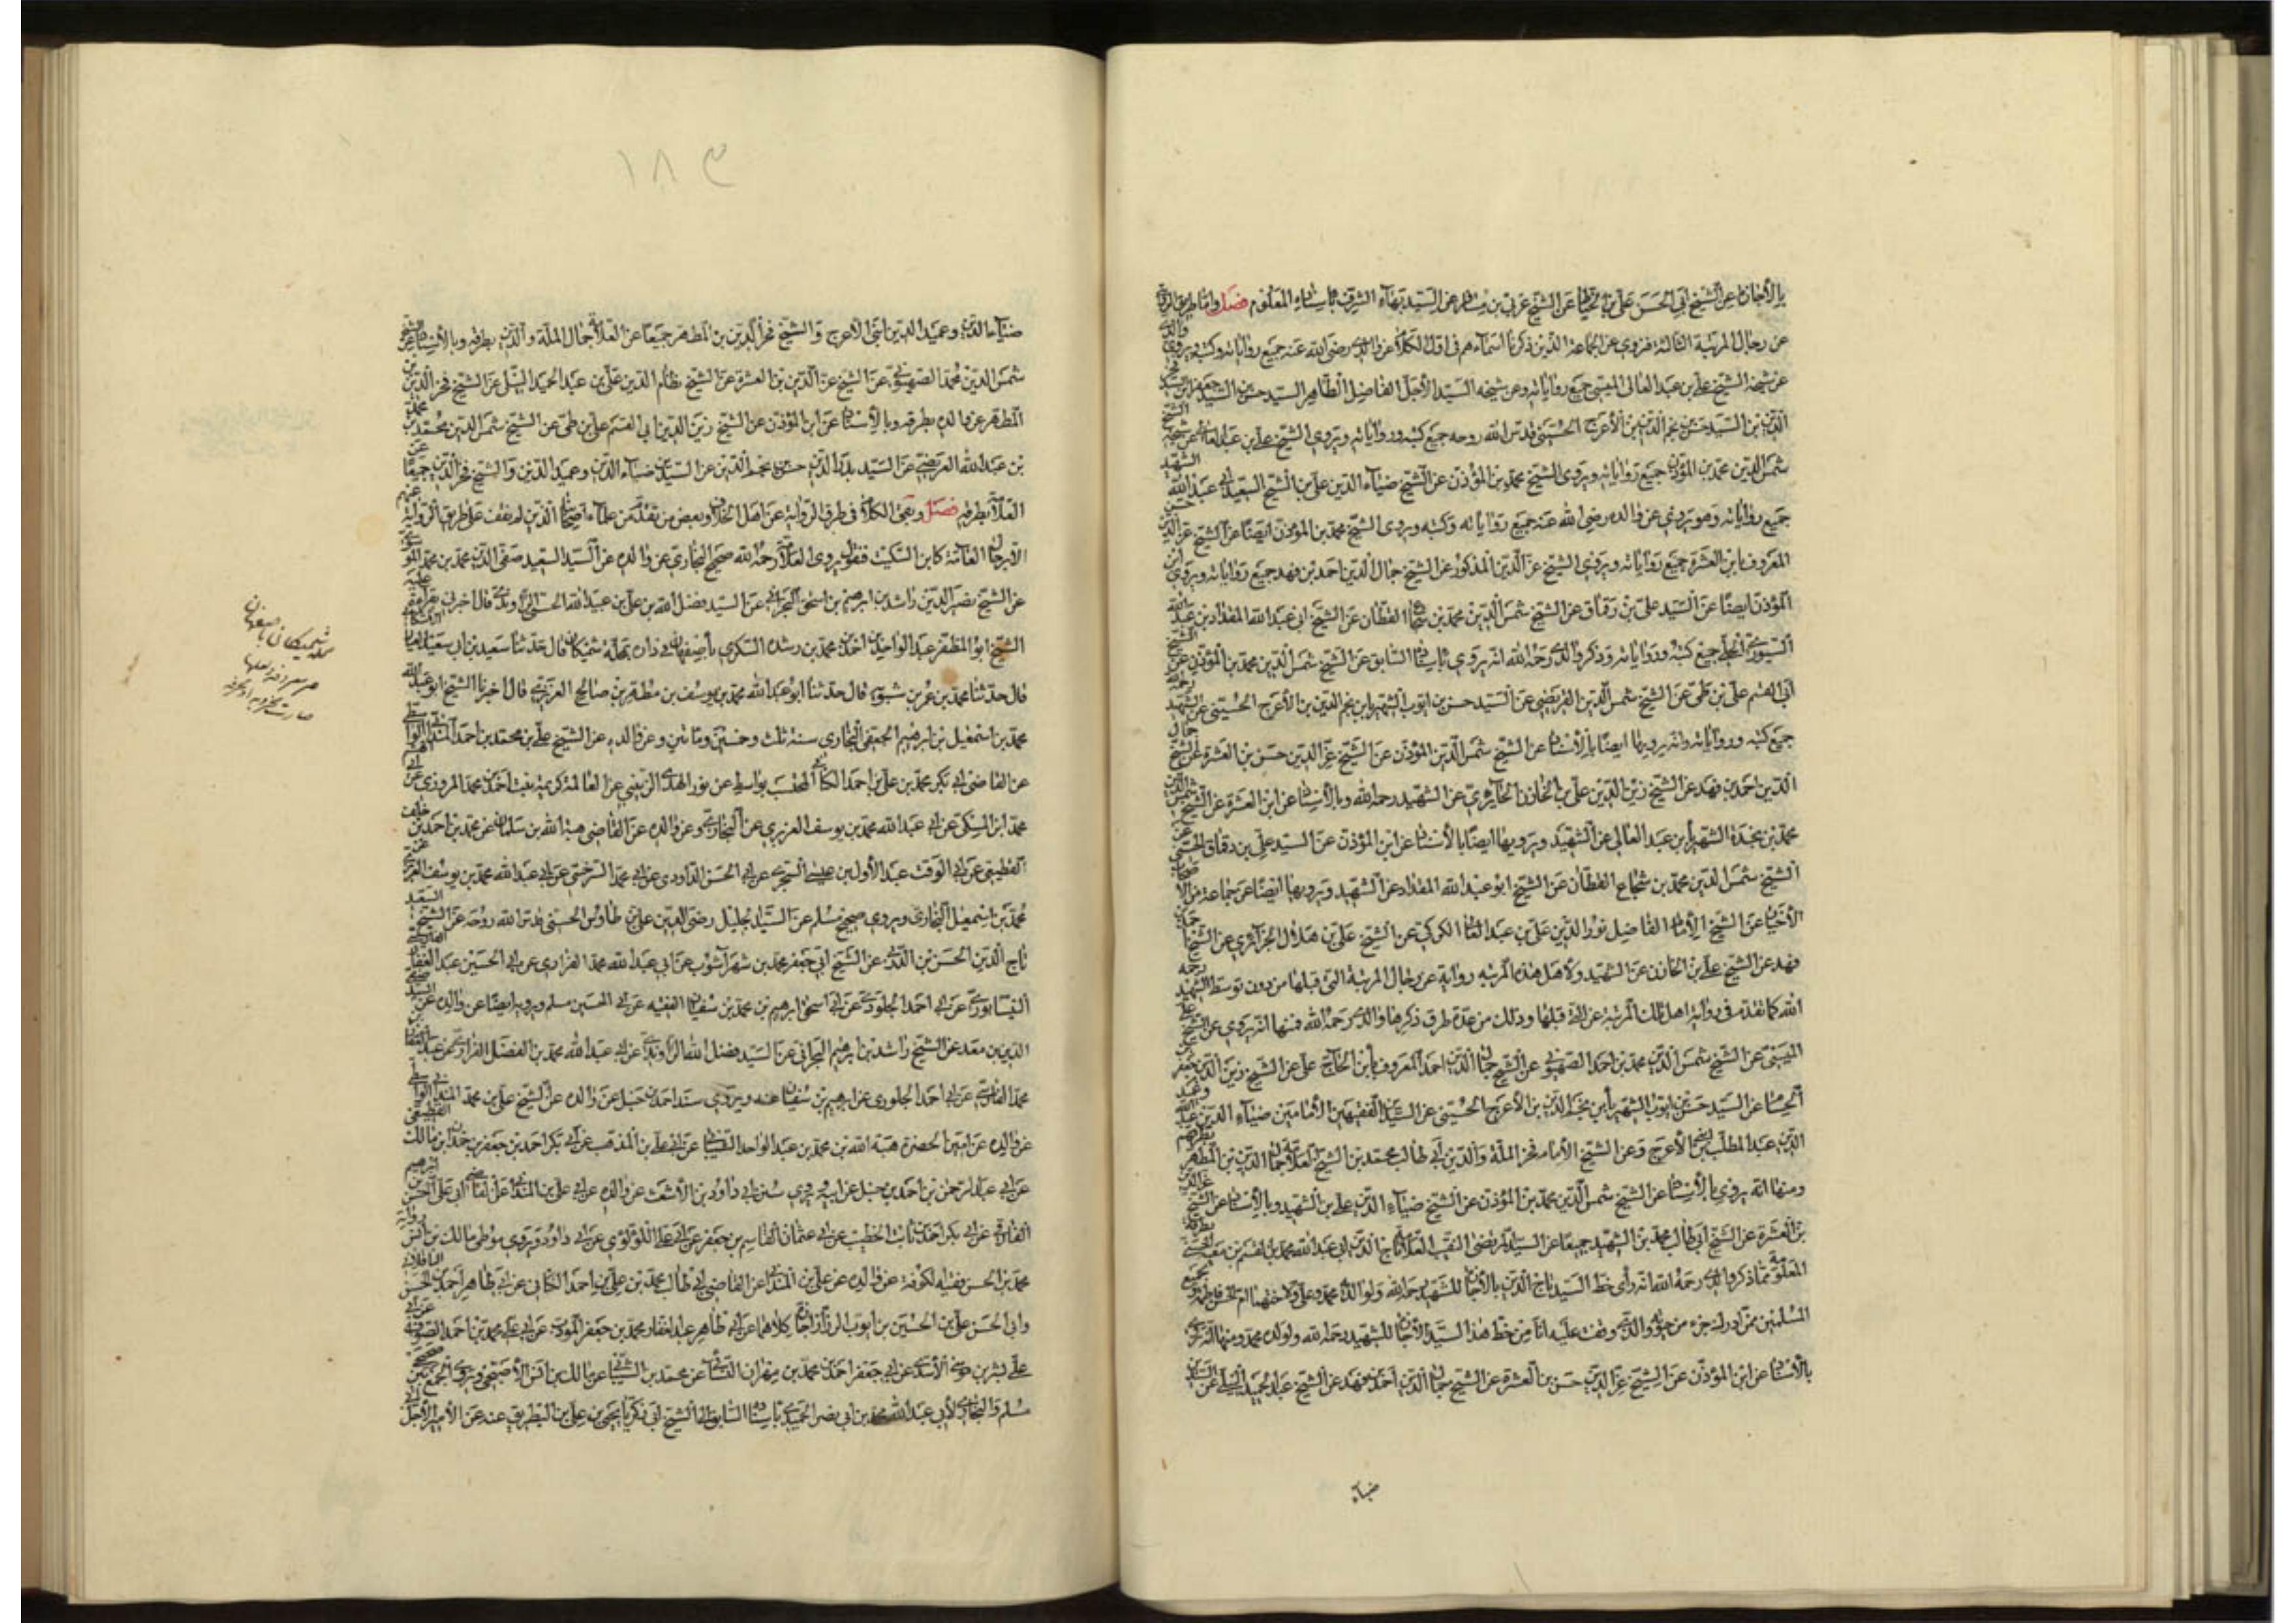 بالأجازة عن الشيخ أبي الحسن علي عن الشيخ عربي بن مسافر عن السيد بهاء الشرف باسناده المعلوم فصل وأما
عن رجال المرتبة الثالثة فنروي عن الجماعة الذين ذكرنا أسماءهم في أول الكلام عن والدي رضي الله عنه جميع رواياته وكتبه ويروي والدي
عن شيخه الشيخ علي بن عبد العالي الميسي جميع رواياته وعن شيخه السيد الأجل الفاضل الطاهر السيد حسن بن السيد جعفر بن السيد
الدين بن السيد حسن بن نجم الدين بن الأعرج الحسيني قدس الله روحه جميع كتبه ورواياته ويروي الشيخ علي بن عبد العالي عن شيخه الشيخ
شمس الدين محمد بن المؤذن جميع رواياته ويروي الشيخ محمد بن المؤذن عن الشيخ ضياء الدين علي بن الشيخ السعيد أبي عبد الله الشهيد
جميع رواياته وهو يروي عن والده رضي الله عنه جميع رواياته وكتبه ويروي الشيخ محمد بن المؤذن أيضا عن الشيخ عز الدين حسن
المعروف بابن العشرة جميع رواياته ويروي الشيخ عز الدين المذكور عن الشيخ جمال الدين احمد بن فهد جميع رواياته ويروي ابن
المؤذن ايضا عن السيد علي بن دقماق عن الشيخ شمس الدين محمد بن شجاع القطان عن الشيخ ابي عبد الله المقداد بن عبد الله
السيوري الحلي جميع كتبه ورواياته وذكر والدي رحمه الله انه يروي باسناده السابق عن الشيخ شمس الدين محمد بن المؤذن عن الشيخ
أبي القسم علي بن طي عن الشيخ شمس الدين العريضي عن السيد حسن بن ايوب الشهير بابن نجم الدين بن الأعرج الحسيني عن الشهيد رحمه الله
جميع كتبه ورواياته وانه يرويها ايضا بالأسناد عن الشيخ شمس الدين المؤذن عن الشيخ عز الدين حسن بن العشرة عن الشيخ جمال
الدين احمد بن فهد عن الشيخ زين الدين علي بن الخازن الحائري عن الشهيد رحمه الله وبالأسناد عن ابن العشرة عن الشيخ شمس الدين
محمد بن نجدة الشهير بابن عبد العالي عن الشهيد ويرويها ايضا بالأسناد عن ابن المؤذن عن السيد علي بن دقماق الحسني عن
الشيخ شمس الدين محمد بن شجاع القطان عن الشيخ ابو عبد الله المقداد عن الشهيد ويرويها ايضا عن جماعة من الأصحاب
الأخيار عن الشيخ الإمام الفاضل نور الدين علي بن عبد العالي الكركي عن الشيخ علي بن هلال الجزائري عن الشيخ
فهد عن الشيخ علي بن الخازن عن الشهيد ولأهل هذه المرتبة رواية عن رجال المرتبة التي قبلها من دون توسط الشهيد رحمه
الله كما تقدم في رواية اهل تلك المرتبة عن التي قبلها وذلك من عدة طرق ذكرها والدي رحمه الله فمنها انه يروي عن الشيخ علي
الميسي عن الشيخ شمس الدين محمد بن احمد الصهيوني عن الشيخ جمال الدين احمد المعروف بابن الحاج علي عن الشيخ زين الدين جعفر بن
الحسام عن السيد حسن بن ايوب الشهير بابن نجم الدين بن الأعرج الحسيني عن السيدين الفقيهين الأمامين ضياء الدين عبد الله وعميد
الدين عبد المطلب ابني الأعرج وعن الشيخ الأمام فخر الملة والدين أبي طالب محمد بن الشيخ العلامة جمال الدين بن المطهر بطرقهم
ومنها انه يروي بالأسناد عن الشيخ شمس الدين محمد بن المؤذن عن الشيخ ضياء الدين علي بن الشهيد وبالأسناد عن الشيخ عز الدين
بن العشرة عن الشيخ أبي طالب محمد بن الشهيد جميعا عن السيد المرتضى النقيب العلامة تاج الدين أبي عبد الله محمد بن القسم بن معية الحسني بطرقه
المعلومة مما ذكر والدي رحمه الله انه رأى خط السيد تاج الدين بالأجازة للشهيد رحمه الله ولولديه محمد وعلي ولأختهما ام الحسن فاطمة ولجميع
المسلمين ممن ادرك جزء من حيوته والذي وقفت عليه انا من خط هذا السيد الأجازة للشهيد رحمه الله ولولده محمد ومنها انه يروي
بالأسناد عن ابن المؤذن عن الشيخ عز الدين حسن بن العشرة عن الشيخ جمال الدين احمد بن فهد عن الشيخ عبد الحميد النيلي عن السيدين
ضياء
١٨٣
ضياء الدين وعميد الدين ابني الأعرج والشيخ فخر الدين بن المطهر جميعا عن العلامة جمال الملة والدين بطرقه وبالأسناد عن الشيخ
شمس الدين محمد الصهيوني عن الشيخ عز الدين بن العشرة عن الشيخ نظام الدين علي بن عبد الحميد النيلي عن الشيخ فخر الدين بن
المطهر عن والده بطرقه وبالأسناد عن ابن المؤذن عن الشيخ زين الدين ابي القسم علي بن طي عن الشيخ شمس الدين محمد بن محمد
بن عبد الله العريضي عن السيد بدر الدين حسن بن نجم الدين عن السيدين ضياء الدين وعميد الدين والشيخ فخر الدين جميعا عن
العلامة بطرقه فصل وبقي الكلام في طرق الرواية عن اهل الخلاف وبعض من تقدم من علماء اصحابنا الذين لم نقف على طريق الرواية عنهم
الا برجال العامة كابن السكيت فنقول يروي العلامة رحمه الله صحيح البخاري عن والده عن السيد السعيد صفي الدين محمد بن محمد الموسوي
عن الشيخ نصير الدين راشد بن ابرهيم بن اسحق البحراني عن السيد فضل الله بن علي بن عبيد الله الحسني الراوندي قال اخبرني بقراءتي عليه
الشيخ ابو المظفر عبد الواحد بن احمد بن محمد بن رشيده السكري بأصفهان في داره بمحلة شميكان قال حدثنا سعيد بن ابي سعيد العيار
قال حدثنا محمد بن عمر بن شبويه قال حدثنا ابو عبد الله محمد بن يوسف بن مطهر بن صالح العزيزي قال اخبرنا الشيخ ابو عبد الله
محمد بن اسمعيل بن ابرهيم الجعفي البخاري سنة ثلث وخمسين ومائتين وعن والده عن الشيخ علي بن محمد بن احمد المندائي الواسطي
عن القاضي أبي بكر محمد بن علي بن احمد الكتاني المحتسب بواسط عن نور الهدى الزينبي عن العالمة كريمة بنت احمد بن محمد المروزي عن أبي
محمد ابن المكي عن أبي عبد الله محمد بن يوسف العزيزي عن البخاري وعن والده عن القاضي هبة الله بن سلمان عن محمد بن احمد بن خلف
القطيعي عن أبي الوقت عبد الأول بن عيسى السجزي عن أبي الحسن الداودي عن أبي محمد السرخسي عن أبي عبد الله محمد بن يوسف العزيزي عن
محمد بن اسمعيل البخاري ويروي صحيح مسلم عن السيد الجليل رضي الدين علي بن طاوس الحسني قدس الله روحه عن الشيخ السعيد
تاج الدين الحسن بن الدربي عن الشيخ أبي جعفر محمد بن شهرآشوب عن أبي عبد الله محمد الفراوي عن أبي الحسين عبد الغافر الفارسي
النيسابوري عن أبي احمد الجلودي عن أبي اسحق ابرهيم بن محمد بن سفيان الفقيه عن أبي الحسين مسلم ويرويه ايضا عن والده عن السيد صفي
الدين بن معد عن الشيخ راشد بن ابرهيم البحراني عن السيد فضل الله الراوندي عن أبي عبد الله محمد بن الفضل الفراوي عن عبد الغافر بن
محمد الفارسي عن أبي احمد الجلودي عن ابرهيم بن سفيان عنه ويروي مسند احمد بن حنبل عن والده عن الشيخ علي بن محمد المندائي الواسطي
عن والده عن امين الحضرة هبة الله بن محمد بن عبد الواحد الشيباني عن أبي علي بن المذهب عن أبي بكر احمد بن جعفر بن حمدان بن مالك القطيعي
عن أبي عبد الرحمن بن احمد بن حنبل عن ابيه ويروي سنن أبي داود بن الأشعث عن والده عن أبي علي بن المندائي عن القاضي أبي علي الحسن بن ابرهيم
الفارقي عن أبي بكر احمد بن ثابت الخطيب عن أبي عثمان القاسم بن جعفر عن أبي علي اللؤلؤي عن أبي داود ويروي موطى مالك بن انس رواية
محمد بن الحسن فقيه الكوفة عن والده عن علي بن المندائي عن القاضي أبي طالب محمد بن علي بن احمد الكتاني عن أبي طاهر احمد بن الحسن الباقلاني
وابي الحسن علي بن الحسين بن ايوب البزاز اجازة كلاهما عن أبي طاهر عبد الغفار محمد بن جعفر المؤدب عن أبي علي محمد بن احمد الصواف عن أبي
علي بشر بن موسى الأسدي عن أبي جعفر احمد بن محمد بن مهران النسائي عن محمد بن الشيباني عن مالك بن انس الأصبحي ويروي الجمع بين صحيحي
مسلم والبخاري لأبي عبد الله محمد بن أبي نصر الحميدي باسناده السابق الى الشيخ أبي زكريا يحيى بن علي بن البطريق عنه عن الأمير الأجل أبي
شميكان باصفهان